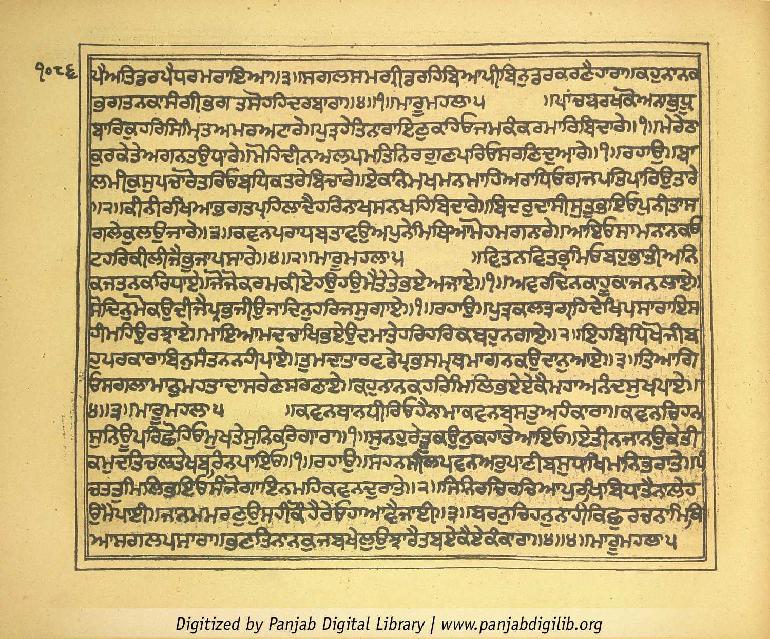 ੧੦੮੬
ਪੈਅਤਿਡਰਪੈਧਰਮਰਾਇਆ॥੩॥ਸਗਲਸਮਗ੍ਰੀਡਰਹਿਬਿਆਪੀਬਿਨੁਡਰਕਰਣੈਹਾਰਾ॥ਕਹੁਨਾਨਕ
ਭਗਤਨਕਾਸੰਗੀਭਗਤਸੋਹਹਿਦਰਬਾਰਾ॥੪॥੧॥ਮਾਰੂਮਹਲਾ੫ ॥ਪਾਂਚਬਰਖਕੋਅਨਾਥੁਧ੍ਰੂ
ਬਾਰਿਕੁਹਰਿਸਿਮਰਤਅਮਰਅਟਾਰੇ॥ਪੁਤ੍ਰਹੇਤਿਨਾਰਾਇਣੁਕਹਿਓਜਮਕੰਕਰਮਾਰਿਬਿਦਾਰੇ॥੧॥ਮੇਰੇਠਾ
ਕੁਰਕੇਤੇਅਗਨਤਉਧਾਰੇ॥ਮੋਹਿਦੀਨਅਲਪਮਤਿਨਿਰਗੁਣਪਰਿਓਸਰਣਿਦੁਆਰੇ॥੧॥ਰਹਾਉ॥ਬਾ
ਲਮੀਕੁਸੁਪਚਾਰੋਤਰਿਓਬਧਿਕਤਰੇਬਿਚਾਰੇ॥ਏਕਨਿਮਖਮਨਮਾਹਿਅਰਾਧਿਓਗਜਪਤਿਪਾਰਿਉਤਾਰੇ
॥੨॥ਕੀਨੀਰਖਿਆਭਗਤਪ੍ਰਹਿਲਾਦੈਹਰਿਨਾਖਸਨਖਹਿਬਿਦਾਰੇ॥ਬਿਦਰੁਦਾਸੀਸੁਤੁਭਇਓਪੁਨੀਤਾਸ
ਗਲੇਕੁਲਉਜਾਰੇ॥੩॥ਕਵਨਪਰਾਧਬਤਾਵਉਅਪੁਨੇਮਿਥਿਆਮੋਹਮਗਨਾਰੇ॥ਆਇਓਸਾਮਨਾਨਕਓ
ਟਹਰਿਕੀਲੀਜੈਭੁਜਾਪਸਾਰੇ॥੪॥੨॥ਮਾਰੂਮਹਲਾ੫ ॥ਵਿਤਨਵਿਤਭ੍ਰਮਿਓਬਹੁਭਾਤੀਅਨਿ
ਕਜਤਨਕਰਿਧਾਏ॥ਜੋਜੋਕਰਮਕੀਏਹਉਹਉਮੈਤੇਤੇਭਏਅਜਾਏ॥੧॥ਅਵਰਦਿਨਕਾਹੂਕਾਜਨਲਾਏ॥
ਸੋਦਿਨੁਮੋਕਉਦੀਜੈਪ੍ਰਭਜੀਉਜਾਦਿਨਹਰਿਜਸੁਗਾਏ॥੧॥ਰਹਾਉ॥ਪੁਤ੍ਰਕਲਤ੍ਰਗ੍ਰਿਹਦੇਖਿਪਸਾਰਾਇਸ
ਹੀਮਹਿਉਰਝਾਏ॥ਮਾਇਆਮਦਚਾਖਿਭਏਉਦਮਾਤੇਹਰਿਹਰਿਕਬਹੁਨਗਾਏ॥੨॥ਇਹਬਿਧਿਖੋਜੀਬ
ਹੁਪਰਕਾਰਾਬਿਨੁਸੰਤਨਨਹੀਪਾਏ॥ਤੁਮਦਾਤਾਰਵਡੇਪ੍ਰਭਸੰਮ੍ਰਥਮਾਗਨਕਉਦਾਨੁਆਏ॥੩॥ਤਿਆਗਿ
ਓਸਗਲਾਮਾਨੁਮਹਤਾਦਾਸਰੇਣਸਰਣਾਏ॥ਕਹੁਨਾਨਕਹਰਿਮਿਲਿਭਏਏਕੈਮਹਾਅਨੰਦਸੁਖਪਾਏ॥
੪॥੩॥ਮਾਰੂਮਹਲਾ੫ ॥ਕਵਨਥਾਨਧੀਰਿਓਹੈਨਾਮਾਕਵਨਬਸਤੁਅਹੰਕਾਰਾ॥ਕਵਨਚਿਹਨ
ਸੁਨਿਊਪਰਿਛੋਹਿਓਮੁਖਤੇਸੁਨਿਕਰਿਗਾਰਾ॥੧॥ਸੁਨਹੁਰੇਤੂਕਉਨੁਕਹਾਤੇਆਇਓ॥ਏਤੀਨਜਾਨਉਕੇਤੀ
ਕਮੁਦਤਿਚਲਤੇਖਬਰਿਨਪਾਇਓ॥੧॥ਰਹਾਉ॥ਸਹਨਸੀਲਪਵਨਅਰੁਪਾਣੀਬਸੁਧਾਖਿਮਾਨਿਭਰਾਤੇ॥ਪੰ
ਚਤਤਮਿਲਿਭਇਓਸੰਜੋਗਾਇਨਮਹਿਕਵਨਦੁਰਾਤੇ॥੨॥ਜਿਨਿਰਚਿਰਚਿਆਪੁਰਖਿਬਿਧਾਤੈਨਾਲੇਹ
ਉਮੈਪਾਈ॥ਜਨਮਮਰਣੁਉਸਹੀਕੈਹੈਰੇਓਹਾਆਵੈਜਾਈ॥੩॥ਬਰਨੁਚਿਹਨੁਨਾਹੀਕਿਛੁਰਚਨਾਮਿਥਿ
ਆਸਗਲਪਸਾਰਾ॥ਭਣਤਿਨਾਨਕੁਜਬਖੇਲੁਉਝਾਰੈਤਬਏਕੈਏਕੰਕਾਰਾ॥੪॥੪॥ਮਾਰੂਮਹਲਾ੫
Digitized by Panjab Digital Library | www.panjabdigilib.org